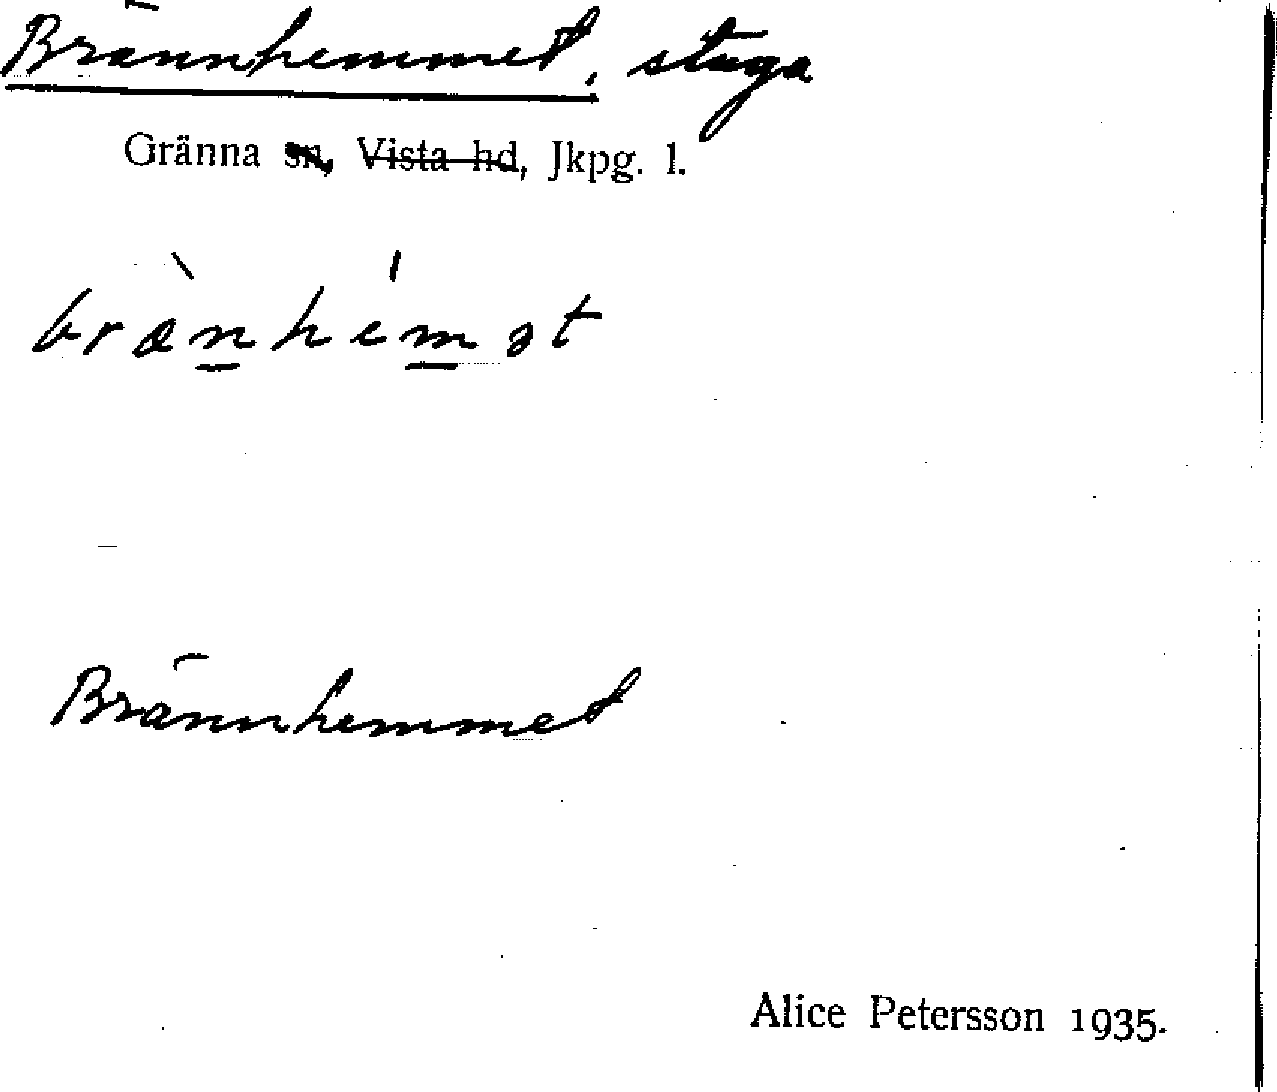 Brännhemmet, stuga
Gränna sn, Vista hd, Jkpg. l.
bræ̀nhémət
Brännhemmet
Alice Petersson 1935.